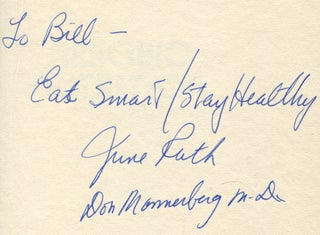 To Bill –
Eat Smart / Stay Healthy
June Roth
Don Mannerberg M.D.